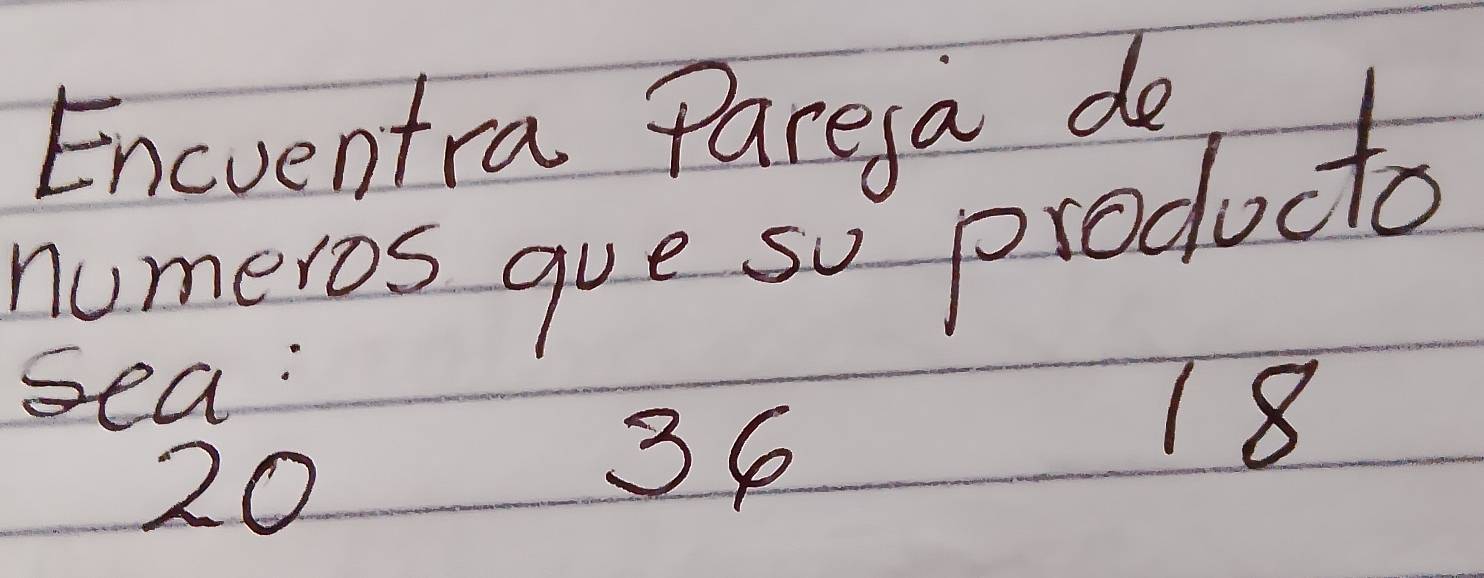 Encuentra Pareja de
numeros que su producto
sea:
20 36 18